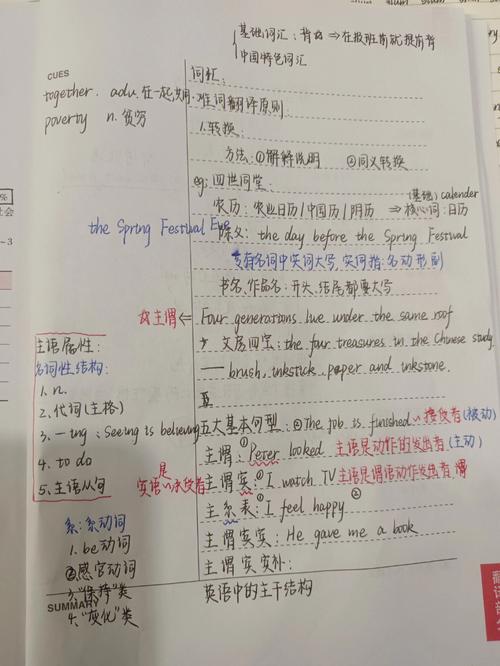 基础词汇：背的 ⇒在报班前就提前背
中国特色词汇
CUES
together. adv. 在一起;共用
poverty n. 贫穷
词汇：
难词翻译原则：
1.转换：
方法：①解释说明 ②同义转换
eg：四世同堂：
(基础) calender
农历：农业日历/中国历/阴历 ⇒核心词：日历
the Spring Festival Eve
除夕：the day before the Spring Festival
专有名词中实词大写，实词指：名动形副
书名、作品名：开头、结尾都要大写
主谓⇐ Four generations live under the same roof
文房四宝：the four treasures in the Chinese study
—— brush, inkstick, paper and inkstone.
主语属性：
名词性结构：
1. n.
2. 代词(主格)
3. -ing：Seeing is believing
4. to do
5. 主语从句
五大基本句型：②The job is finished 接受者(被动)
主谓：①Peter looked 主语是动作的发出者(主动)
是
宾语→承受者
主谓宾：①I watch TV 主语是谓语动作发出者
主系表：①I feel happy ②
主谓宾宾：He gave me a book
主谓宾宾补：
系：系动词
1. be动词
2.感官动词
3."保持"类
4."变化"类
SUMMARY
英语中的主干结构